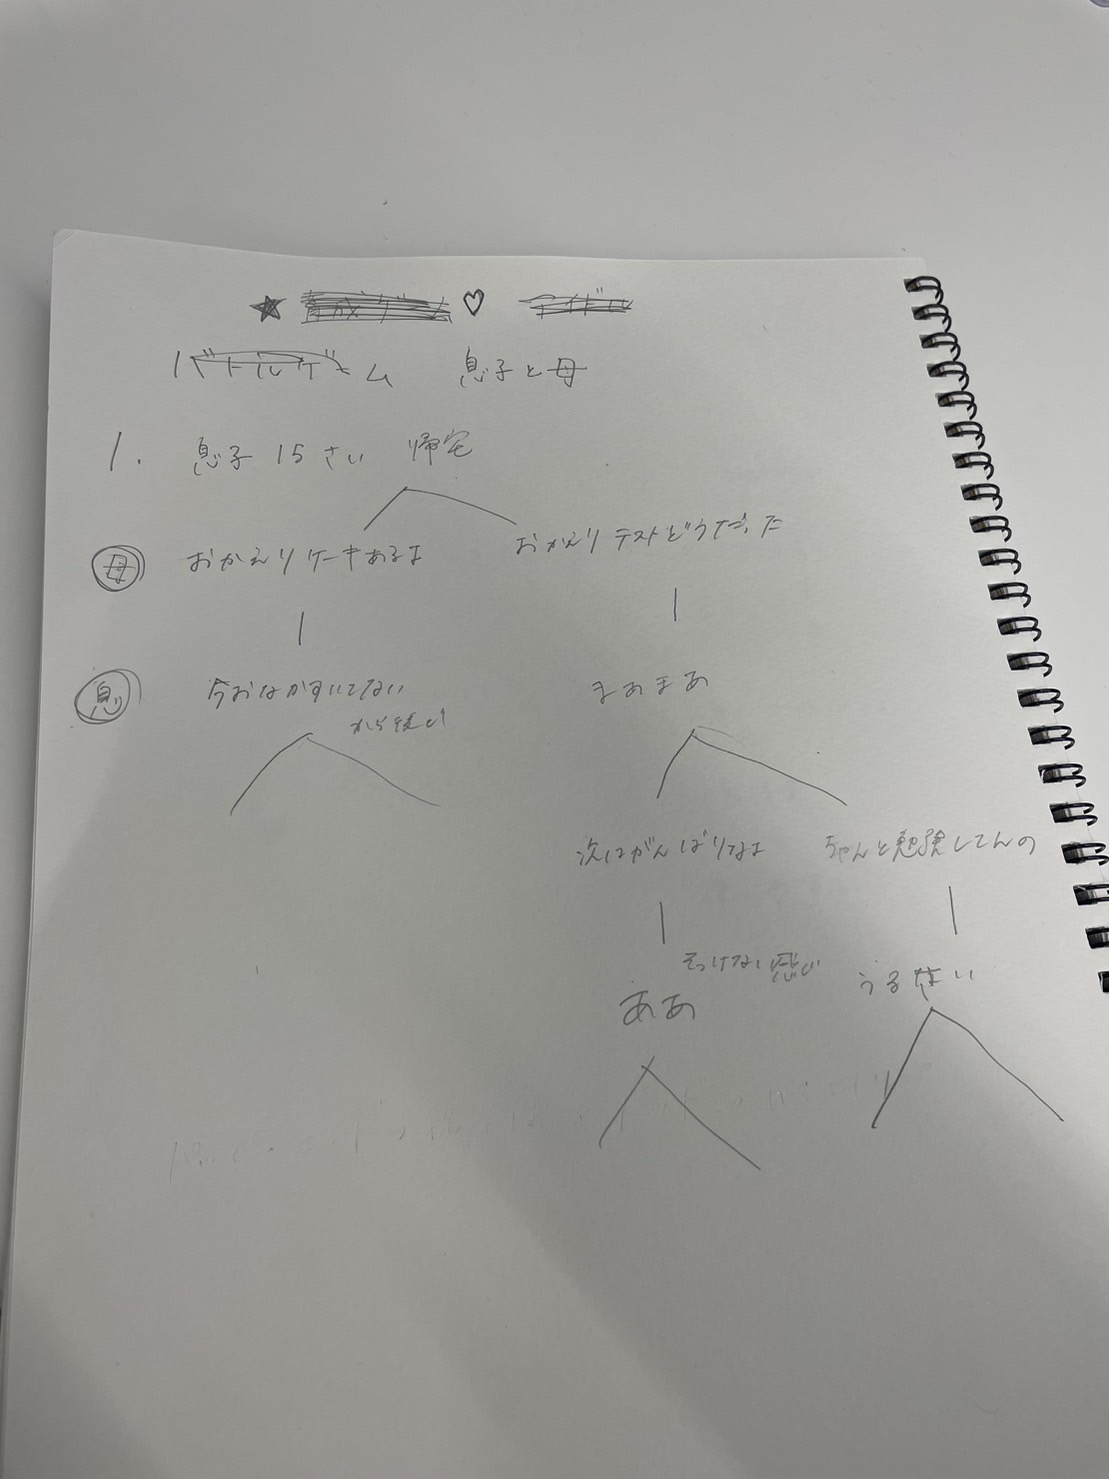 ★ 育成ゲーム ♡ アイドル
バトルゲーム 息子と母
1. 息子 15さい 帰宅
母 おかえりケーキあるよ おかえりテストどうだった
息 今おなかすいてない まあまあ
から後で
次はがんばりなよ ちゃんと勉強してんの
そっけない感じ うるさい
ああ